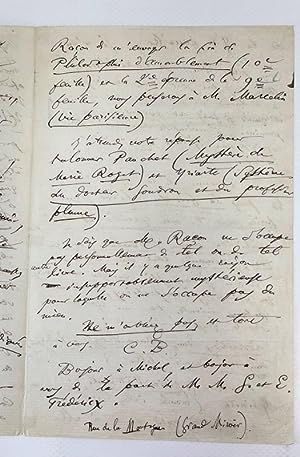 Raçon de m'envoyer la fin de
Philosophie d'ameublement (10e
feuille) et la 2me épreuve de la 9e
feuille, nous passerons à M. Marcelin
(Vie parisienne)
J'attends votre réponse pour
Ponchet (Mystère de
Marie Roget) et Yriarte (Système
du docteur Goudron et du professeur
plume).
Je sais que M. Raçon ne s'occupe
pas personnellement de tel ou de tel
livre. Mais il y a quelque raison
insupportablement mystérieuse
pour laquelle on ne s'occupe pas du
mien.
Ne m'oubliez pas et tout
à vous,
C. B
Bonjour à Michel, et bonjour à
vous de la part de M M. G. et E.
Frédérix.
Rue de la Montagne (Grand Miroir).